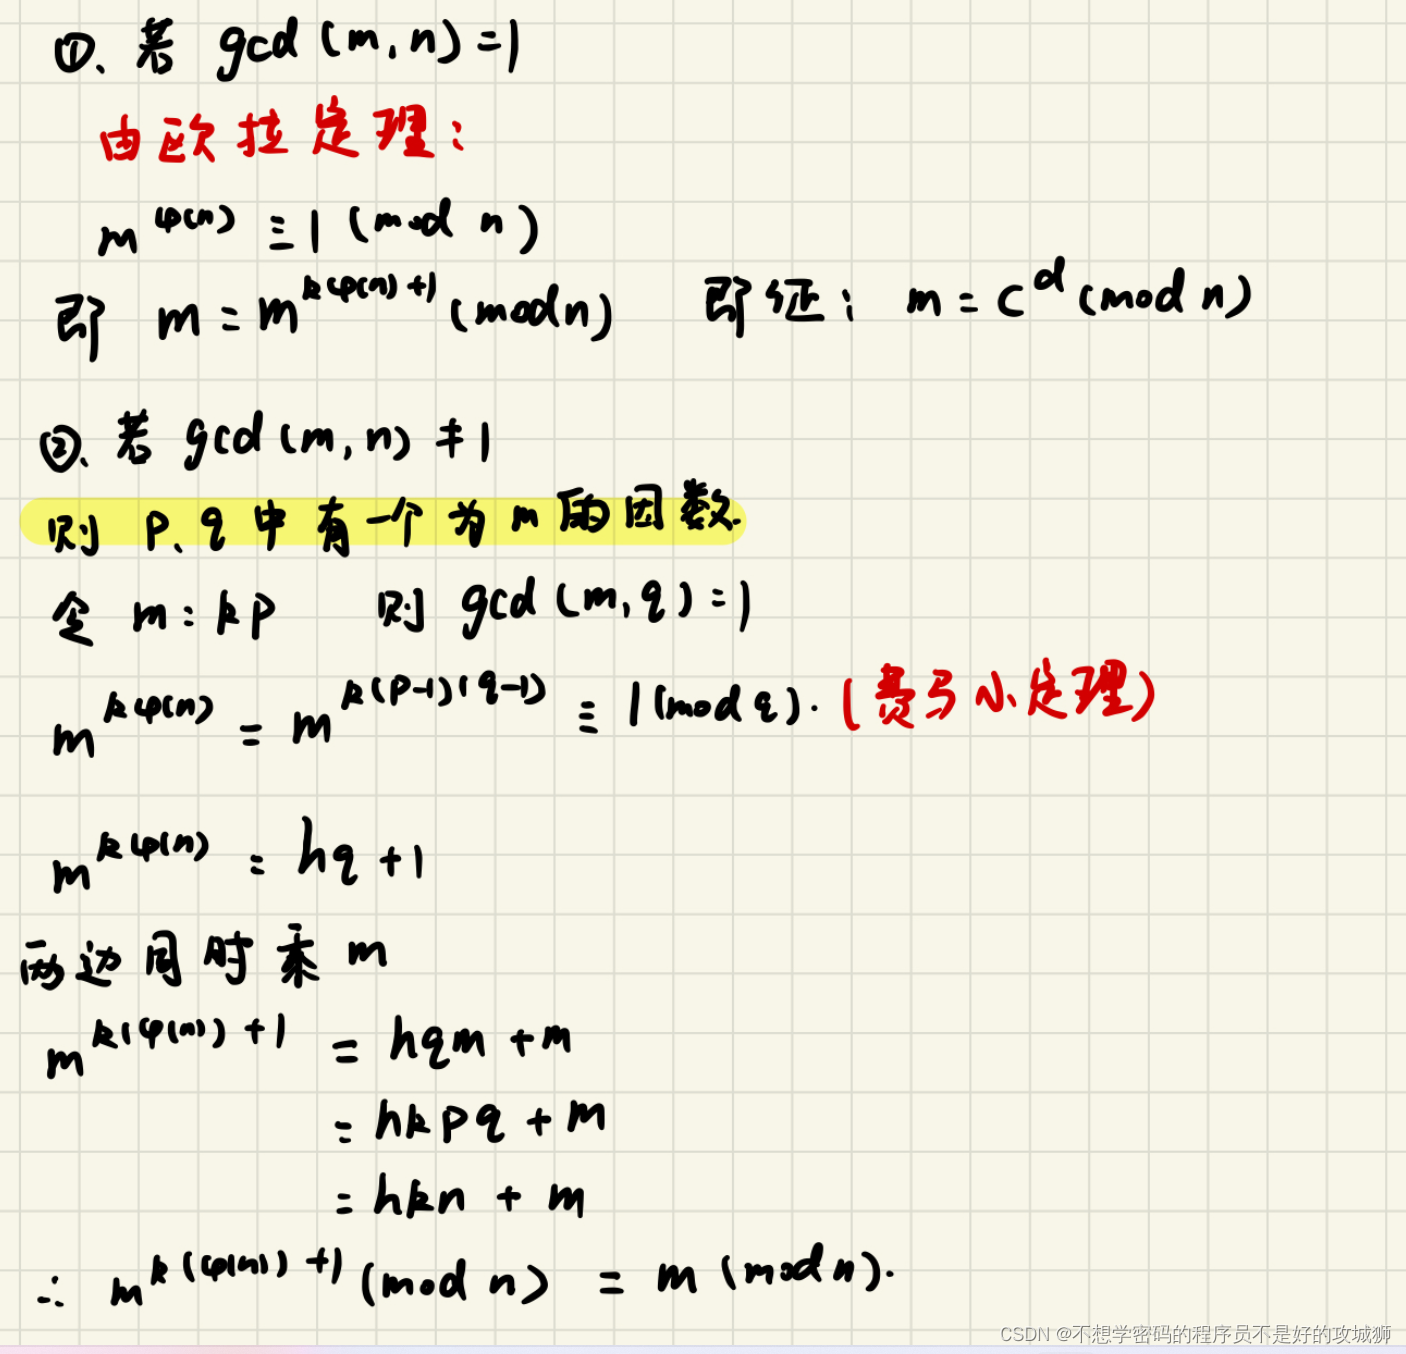 ①、若 gcd(m,n)=1
由欧拉定理：
m^φ(n) ≡ 1 (mod n)
即 m = m^kφ(n)+1 (mod n) 即证： m = c^d (mod n)
②、若 gcd(m,n) ≠ 1
则 p、q 中有一个为 m 的因数.
令 m = kp 则 gcd(m,q)=1
m^kφ(n) = m^k(p-1)(q-1) ≡ 1 (mod q). (费马小定理)
m^kφ(n) = hq + 1
两边同时乘 m
m^k(φ(n))+1 = hqm + m
= hkpq + m
= hkn + m
∴ m^k(φ(n))+1 (mod n) = m (mod n).
CSDN @不想学密码的程序员不是好的攻城狮